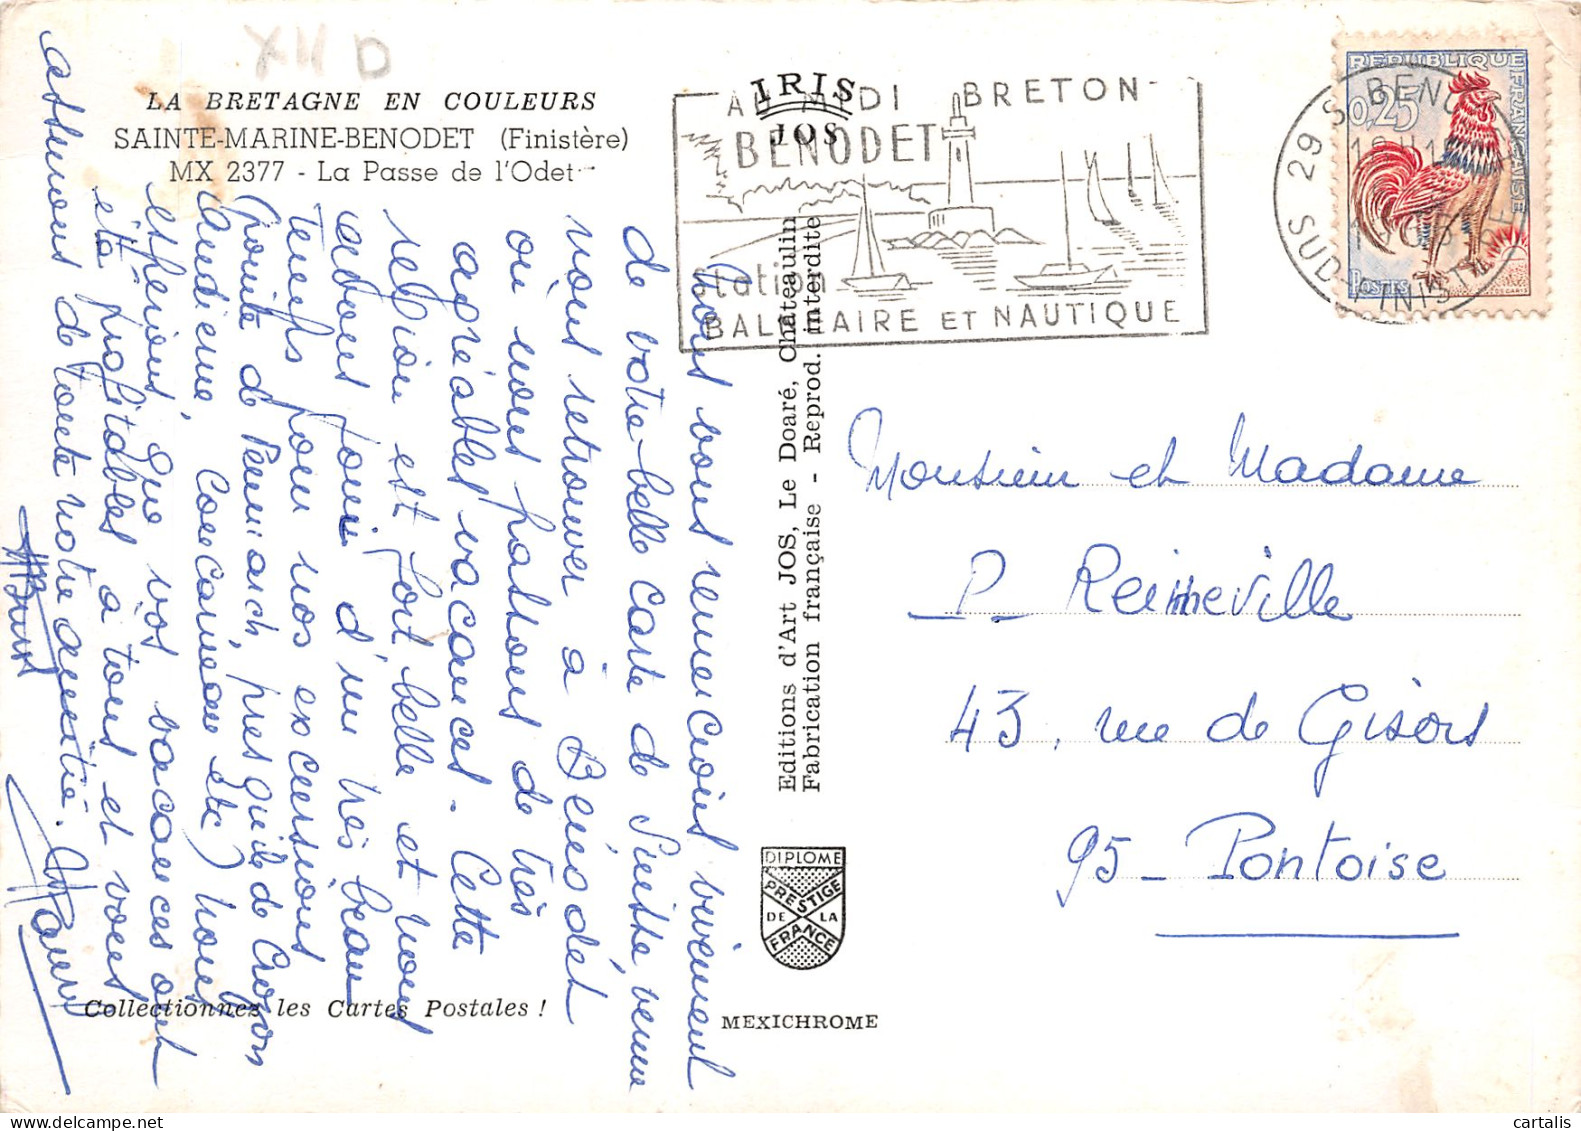 XII D
LA BRETAGNE EN COULEURS
SAINTE-MARINE-BENODET (Finistère)
MX 2377 - La Passe de l'Odet
IRIS
JOS
AU MIDI BRETON
BENODET
station
BALNEAIRE ET NAUTIQUE
29 S. BENODET
SUD-FINISTERE
REPUBLIQUE FRANÇAISE
0,25
POSTES
Nous vous remercions vivement
de votre belle carte de Suisse, venue
nous retrouver à Bénodet
où nous passons de très
agréables vacances. Cette
région est fort belle et nous
avons joui d'un très beau
temps pour nos excursions
(pointe de Penmarch, presqu'ile de Crozon
Audierne, Concarneau etc) Nous
espérons que vos vacances ont
été profitables à tous et vous
assurons de toute notre amitié.
Editions d'Art JOS, Le Doaré, Chateaulin
Fabrication française - Reprod. interdite
Monsieur et Madame
P. Reimeville
43, rue de Gisors
95 - Pontoise
DIPLOME
PRESTIGE
DE LA
FRANCE
Collectionnez les Cartes Postales !
MEXICHROME
cartalis